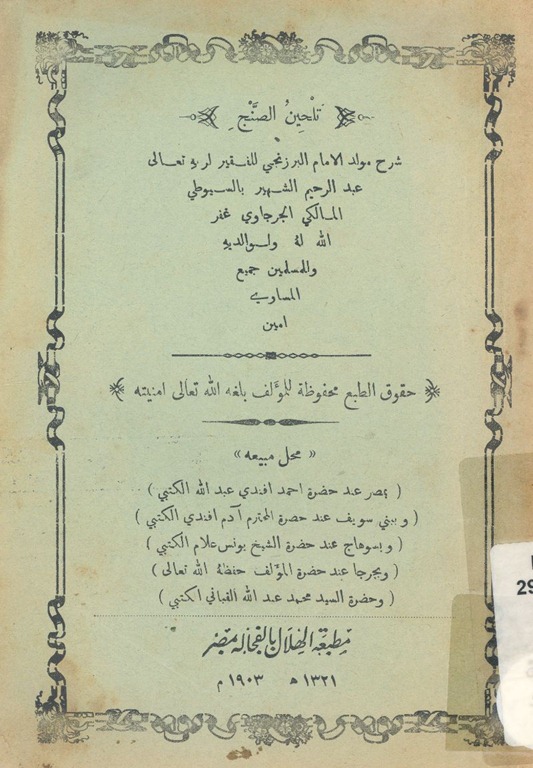 تلحين الصَّنْجِ
شرح مولد الامام البرزنجي للفقير لربه تعالى
عبد الرحيم الشهير بالسيوطي
المالكي الجرجاوي غفر
الله لهُ ولوالديهِ
وللمسلمين جميع
المساوي
امين
حقوق الطبع محفوظة للمؤلف بلغه الله تعالى امنيته
« محل مبيعه »
( بمصر عند حضرة احمد افندي عبد الله الكتبي )
( وببني سويف عند حضرة المحترم آدم افندي الكتبي )
( وبسوهاج عند حضرة الشيخ يونس علام الكتبي )
( وبجرجا عند حضرة المؤلف حفظهُ الله تعالى )
( وحضرة السيد محمد عبد الله القباني الكتبي )
مطبعة الهلال بالفجالة بمصر
١٣٢١ ه ١٩٠٣ م
29